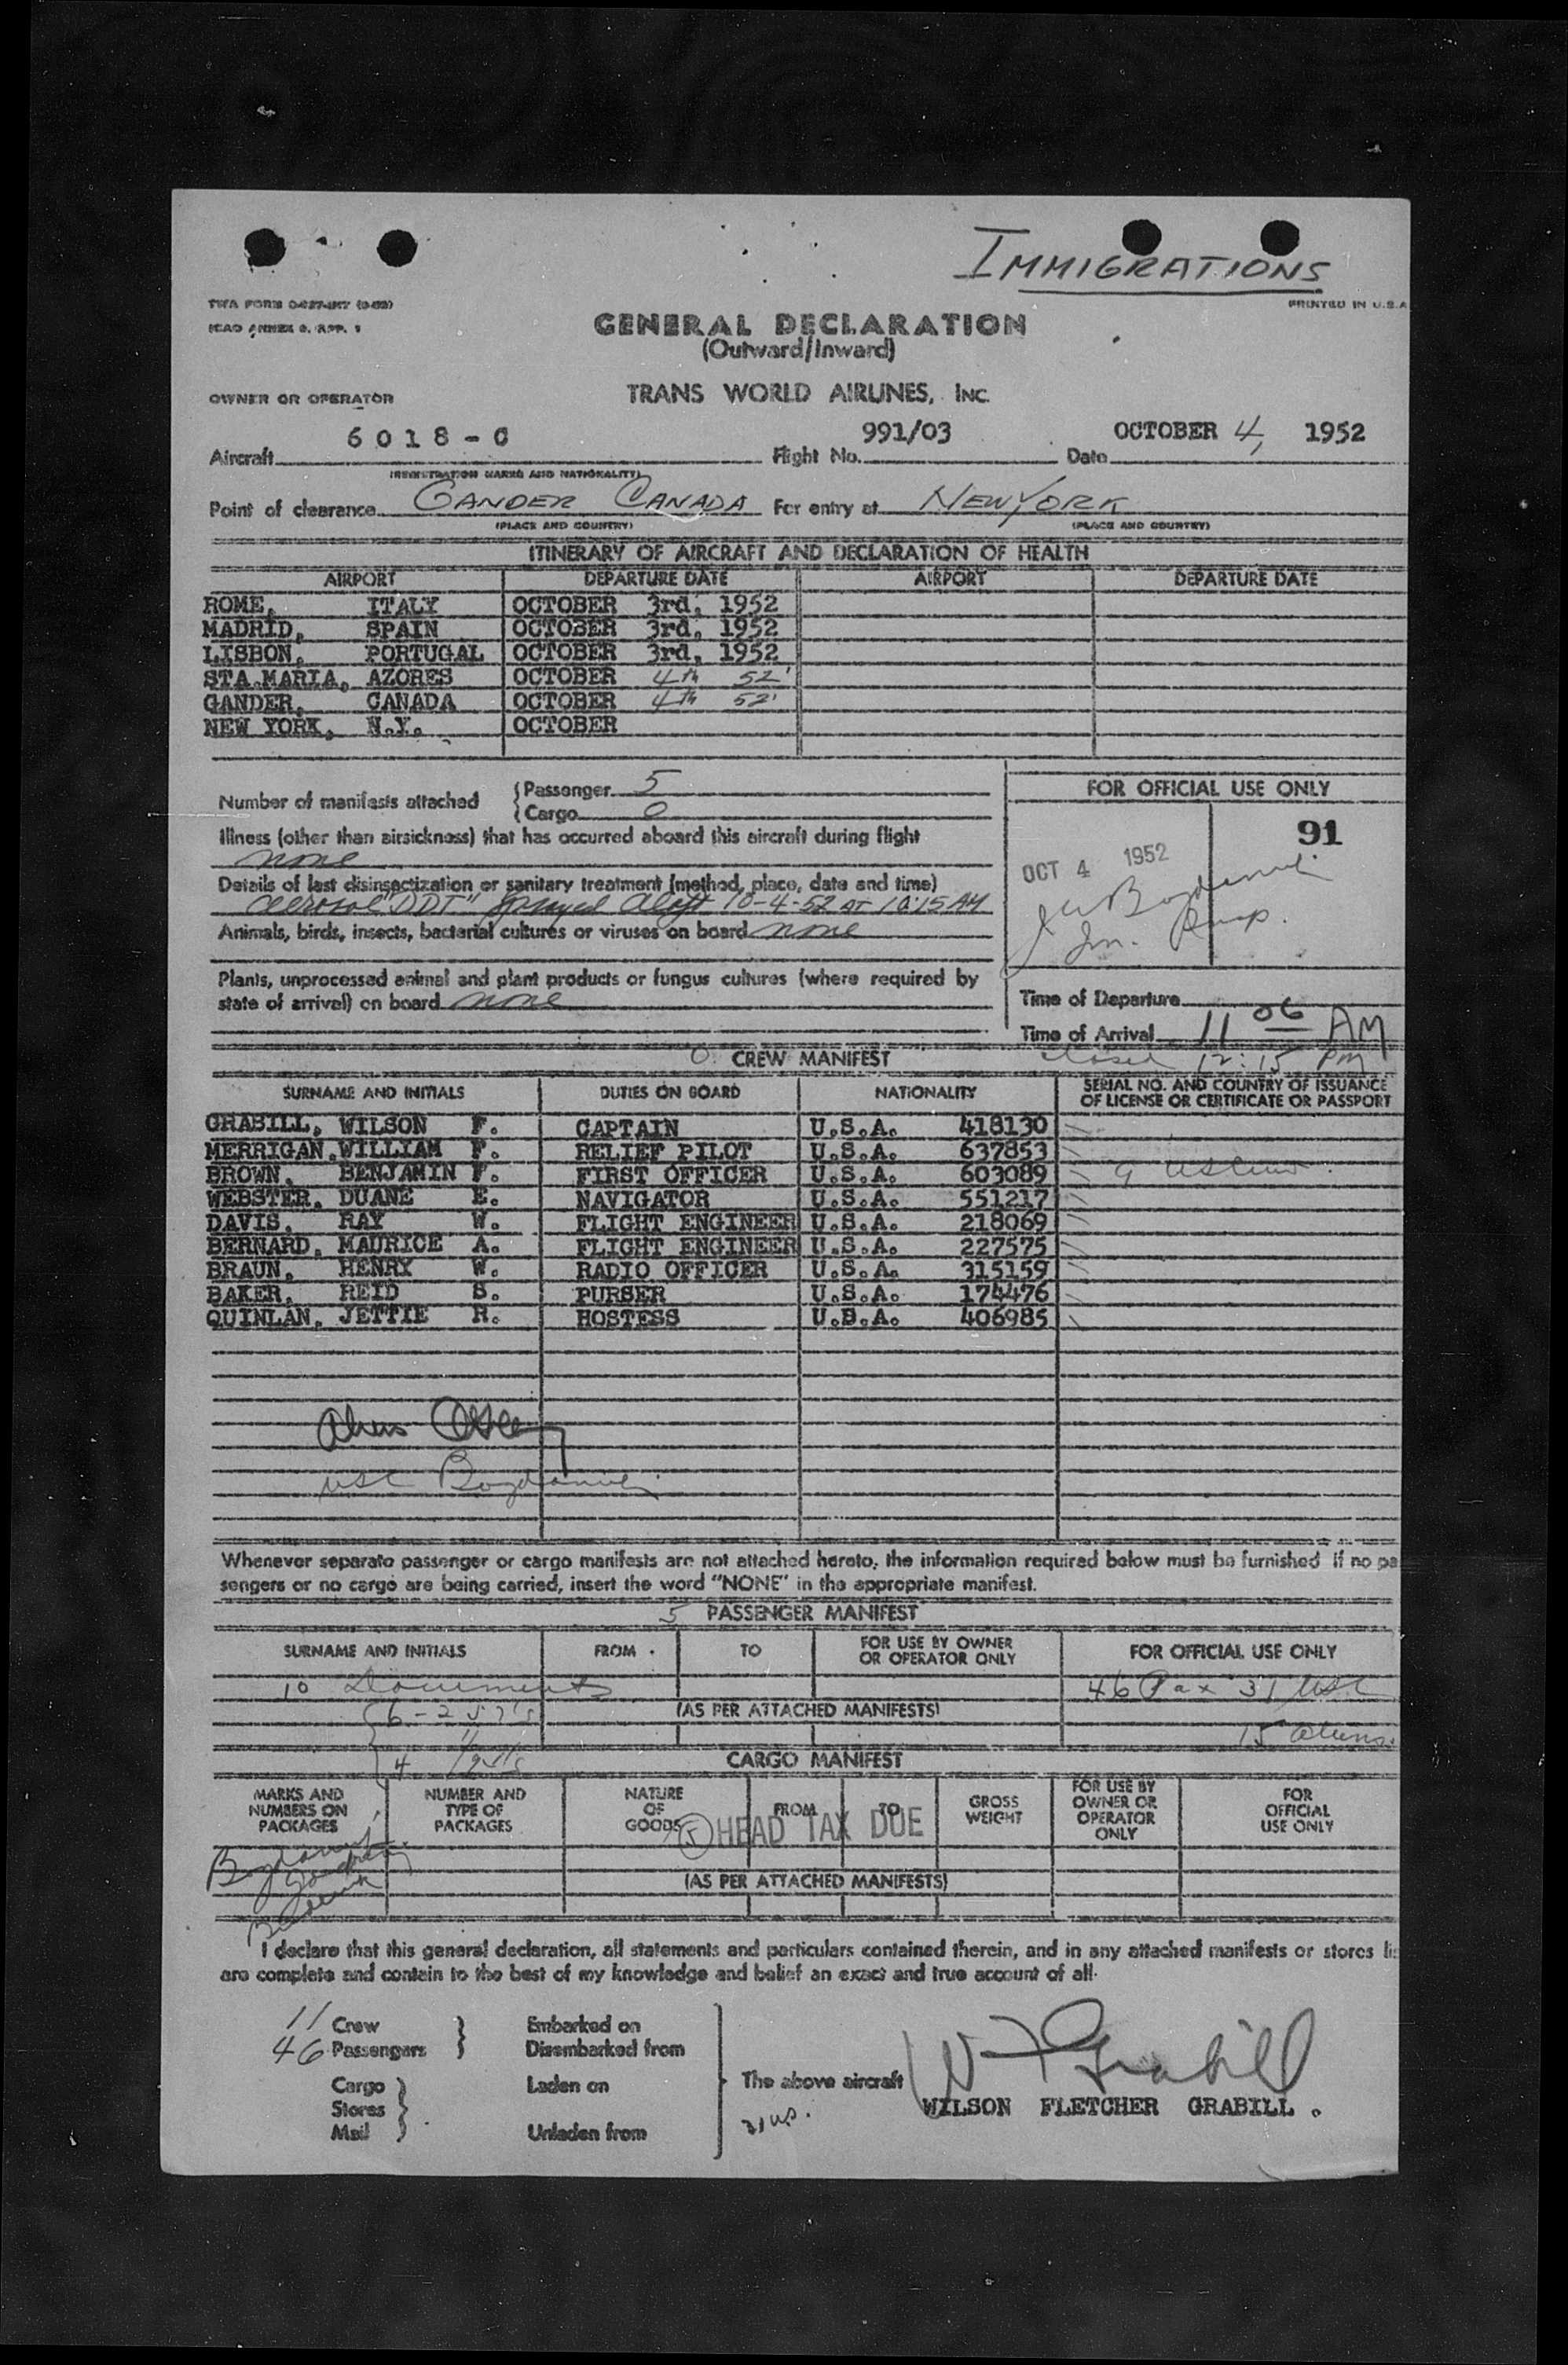 IMMIGRATIONS
PRINTED IN U.S.A
ICAO ANNEX 9, APP. 1
GENERAL DECLARATION
(Outward/Inward)
OWNER OR OPERATOR TRANS WORLD AIRLINES, INC.
Aircraft 6018-C Flight No. 991/03 Date OCTOBER 4, 1952
(REGISTRATION MARKS AND NATIONALITY)
Point of clearance GANDER CANADA For entry at NEW YORK
(PLACE AND COUNTRY) (PLACE AND COUNTRY)
ITINERARY OF AIRCRAFT AND DECLARATION OF HEALTH
AIRPORT DEPARTURE DATE AIRPORT DEPARTURE DATE
ROME, ITALY OCTOBER 3rd, 1952
MADRID, SPAIN OCTOBER 3rd, 1952
LISBON, PORTUGAL OCTOBER 3rd, 1952
STA.MARIA, AZORES OCTOBER 4th 52'
GANDER, CANADA OCTOBER 4th 52'
NEW YORK, N.Y. OCTOBER
Number of manifests attached
Passenger 5
Cargo 0
Illness (other than airsickness) that has occurred aboard this aircraft during flight
none
Details of last disinsectization or sanitary treatment (method, place, date and time)
aerosol "DDT" Sprayed aloft 10-4-52 AT 10:15 AM
Animals, birds, insects, bacterial cultures or viruses on board none
Plants, unprocessed animal and plant products or fungus cultures (where required by
state of arrival) on board none
FOR OFFICIAL USE ONLY
91
OCT 4 1952
Time of Departure
Time of Arrival 11 06 AM
closed 12:15 PM
CREW MANIFEST
SURNAME AND INITIALS DUTIES ON BOARD NATIONALITY SERIAL NO. AND COUNTRY OF ISSUANCE
OF LICENSE OR CERTIFICATE OR PASSPORT
GRABILL, WILSON F. CAPTAIN U.S.A. 418130
MERRIGAN, WILLIAM F. RELIEF PILOT U.S.A. 637853
BROWN, BENJAMIN F. FIRST OFFICER U.S.A. 603089
WEBSTER, DUANE E. NAVIGATOR U.S.A. 551217
DAVIS, RAY W. FLIGHT ENGINEER U.S.A. 218069
BERNARD, MAURICE A. FLIGHT ENGINEER U.S.A. 227575
BRAUN, HENRY W. RADIO OFFICER U.S.A. 315159
BAKER, REID S. PURSER U.S.A. 174476
QUINLAN, JETTIE R. HOSTESS U.S.A. 406985
Whenever separate passenger or cargo manifests are not attached hereto, the information required below must be furnished If no pa
sengers or no cargo are being carried, insert the word "NONE" in the appropriate manifest.
5 PASSENGER MANIFEST
SURNAME AND INITIALS FROM TO FOR USE BY OWNER
OR OPERATOR ONLY FOR OFFICIAL USE ONLY
10 Documents 46 Pax 31 USC
(AS PER ATTACHED MANIFESTS)
15 aliens
CARGO MANIFEST
MARKS AND
NUMBERS ON
PACKAGES
NUMBER AND
TYPE OF
PACKAGES
NATURE
OF
GOODS
FROM TO
GROSS
WEIGHT
FOR USE BY
OWNER OR
OPERATOR
ONLY
FOR
OFFICIAL
USE ONLY
5 HEAD TAX DUE
(AS PER ATTACHED MANIFESTS)
I declare that this general declaration, all statements and particulars contained therein, and in any attached manifests or stores lis
are complete and contain to the best of my knowledge and belief an exact and true account of all
11 Crew Embarked on
46 Passengers Disembarked from
Cargo Laden on
Stores
Mail Unladen from
The above aircraft
W F Grabill
WILSON FLETCHER GRABILL.